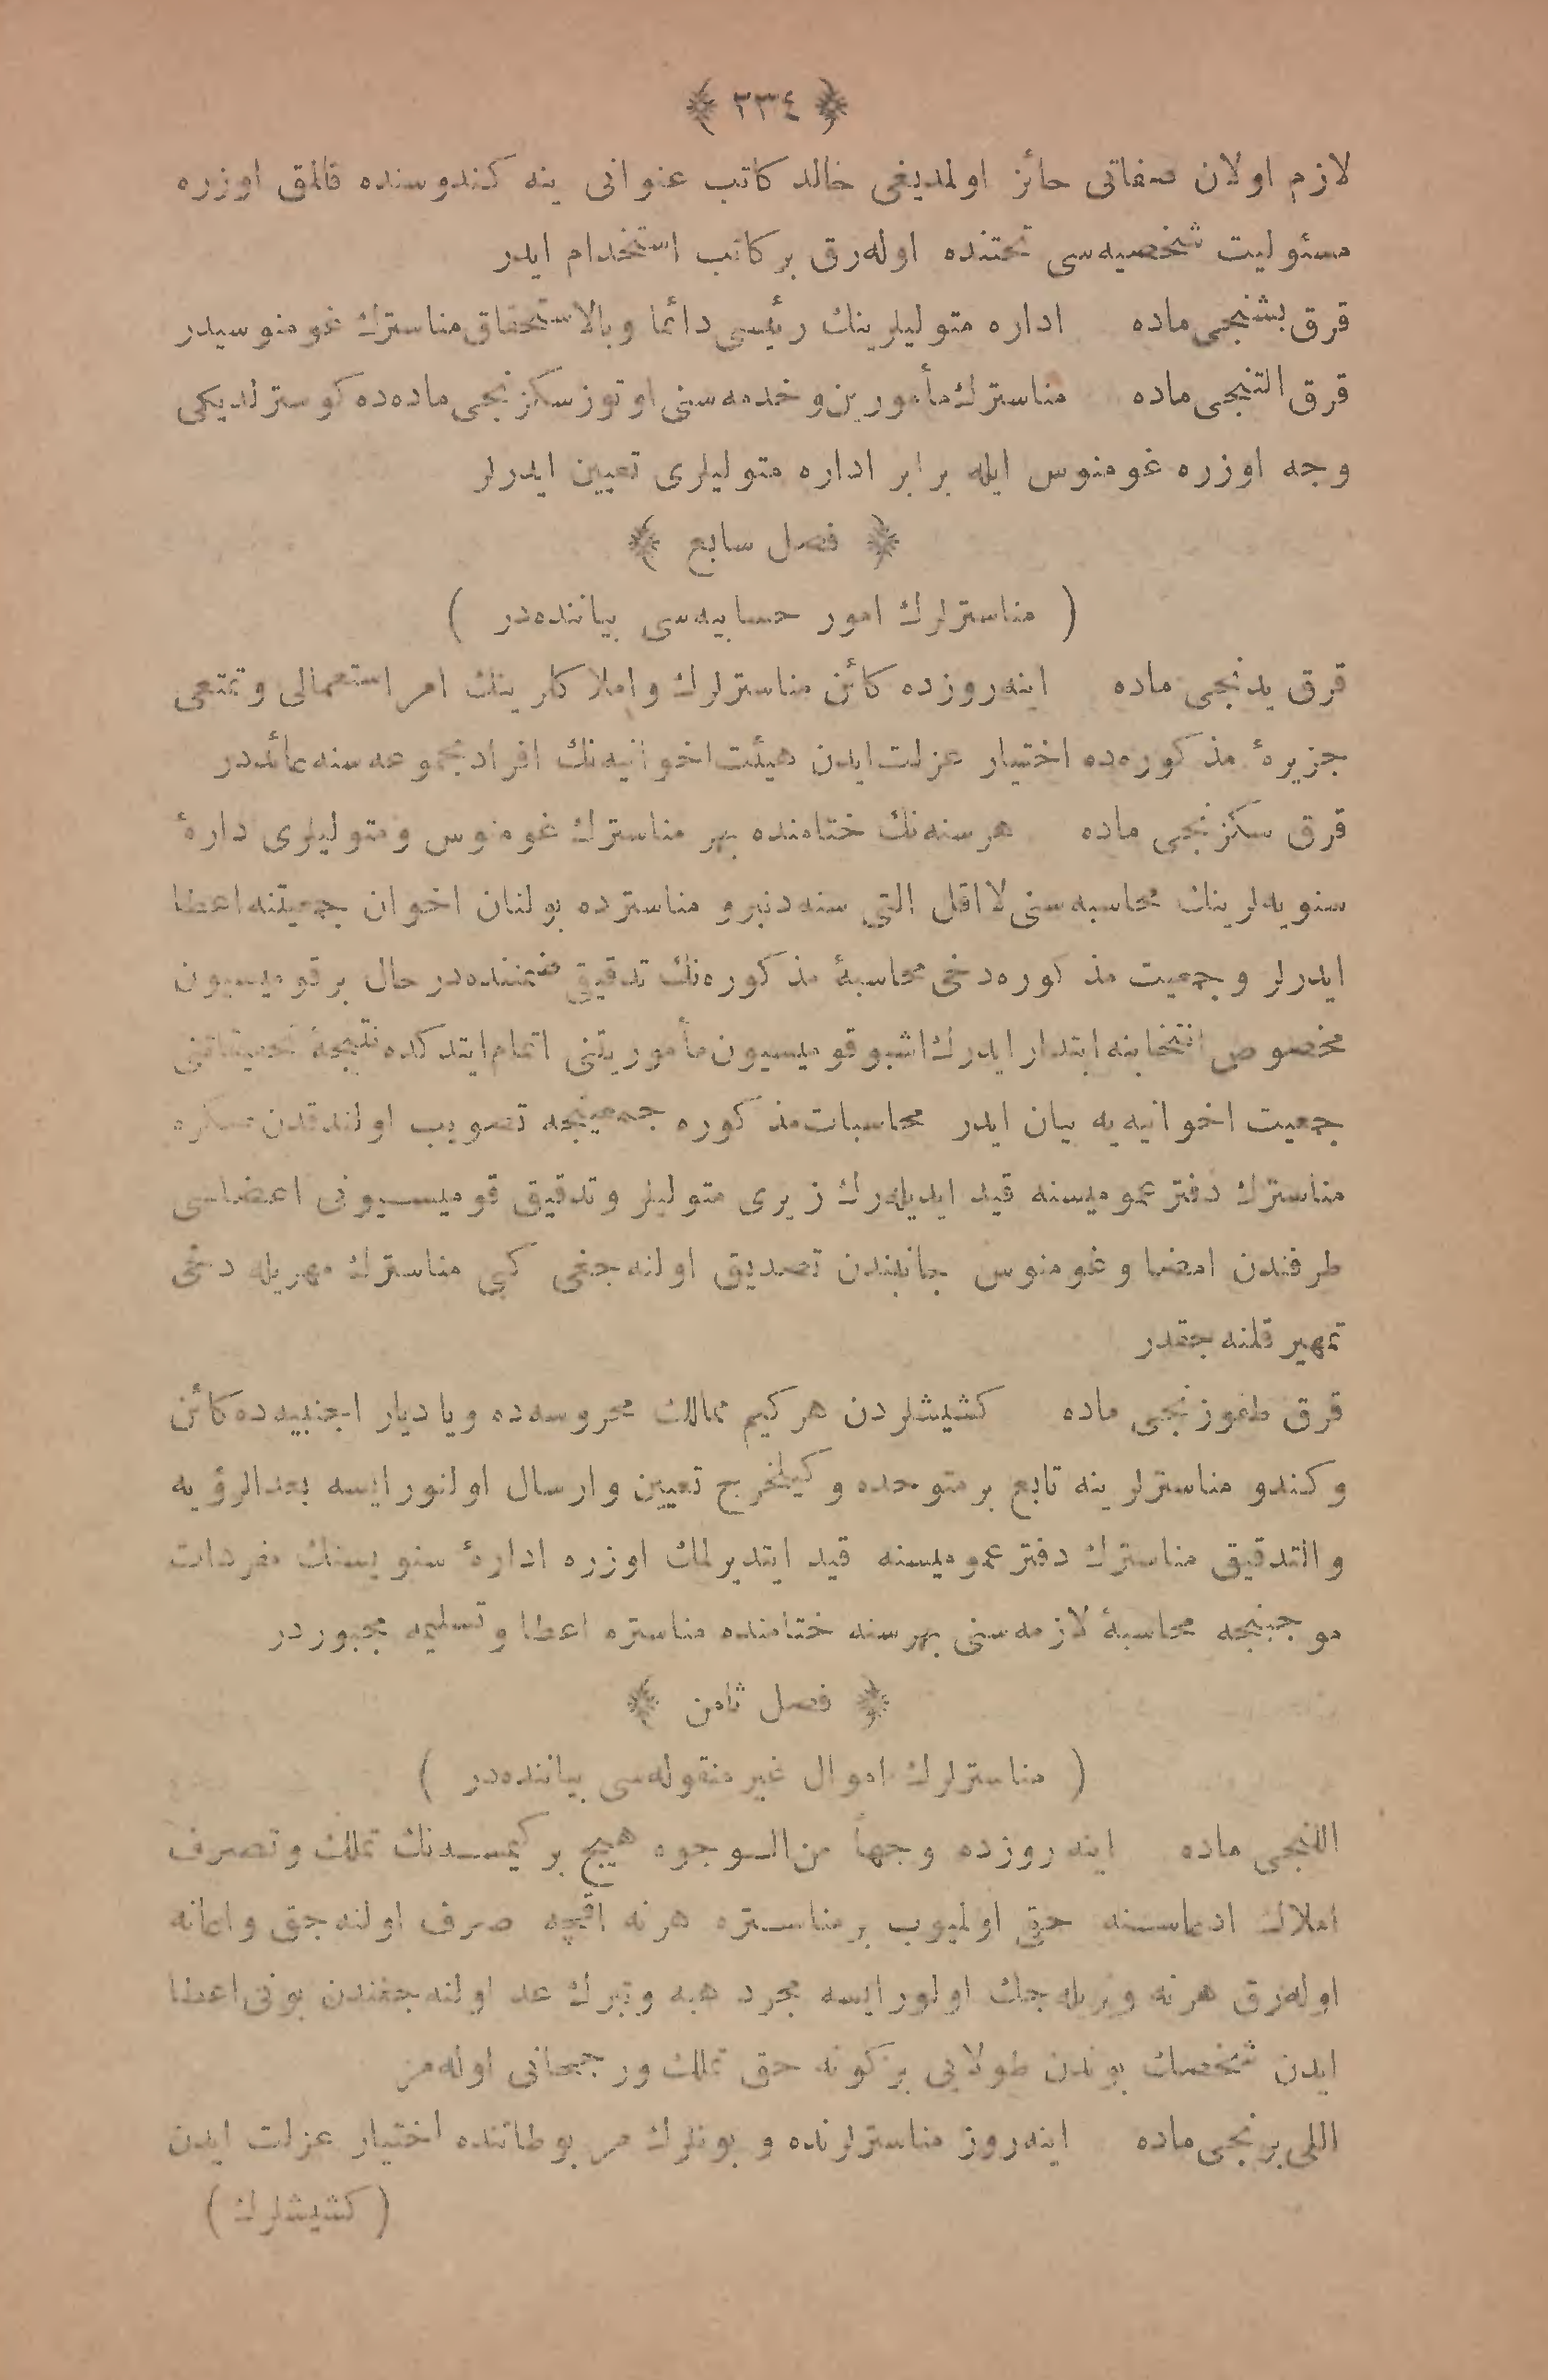 ﴿ ٢٣٤ ﴾
لازم اولان صفاتی حائز اولمدیغی حالده كاتب عنوانی ینه كندوسنده قالمق اوزره
مسئولیت شخصیه‌سی تحتنده اوله‌رق بر كاتب استخدام ایدر
قرق بشنجی ماده اداره متولیلرینك رئیسی دائما وبالاستحقاق مناسترك غومنوسیدر
قرق التنجی ماده مناسترك مأمورین و خدمه‌سنی اوتوز سكزنجی ماده‌ده كوسترلدیكی
وجه اوزره غومنوس ایله برابر اداره متولیلری تعیین ایدرلر
﴿ فصل سابع ﴾
( مناسترلرك امور حسابیه‌سی بیاننده‌در )
قرق یدنجی ماده اینه‌روزده كائن مناسترلرك و املاكلرینك امر استعمالی و تمتعی
جزیرهٔ مذكوره‌ده اختیار عزلت ایدن هیئت اخوانیه‌نك افراد مجموعه‌سنه عائددر
قرق سكزنجی ماده هر سنه‌نك ختامنده بهر مناسترك غومنوس و متولیلری دارهٔ
سنویه‌لرینك محاسبه‌سنی لااقل التی سنه‌دنبرو مناسترده بولنان اخوان جمعیتنه اعطا
ایدرلر و جمعیت مذكوره‌دخی محاسبهٔ مذكوره‌نك تدقیق ضمننده درحال بر قومیسیون
مخصوص انتخابنه ابتدار ایدرك اشبو قومیسیون مأموریتنی اتمام ایتدكده نتیجهٔ تحقیقاتنی
جمعیت اخوانیه‌یه بیان ایدر محاسبات مذكوره جمعیتجه تصویب اولندقدن صكره
مناسترك دفتر عمومیسنه قید ایدیله‌رك زیری متولیلر و تدقیق قومیسیونی اعضاسی
طرفندن امضا و غومنوس جانبندن تصدیق اولنه‌جغی كبی مناسترك مهریله دخی
تمهیر قلنه‌جقدر
قرق طقوزنجی ماده كشیشلردن هر كیم ممالك محروسه‌ده ویا دیار اجنبیه‌ده كائن
و كندو مناسترلرینه تابع بر متوحده وكیلخرج تعیین و ارسال اولنور ایسه بعدالرؤیه
والتدقیق مناسترك دفتر عمومیسنه قید ایتدیرلمك اوزره ادارهٔ سنویسنك مفردات
موجبنجه محاسبهٔ لازمه‌سنی بهر سنه ختامنده مناستره اعطا و تسلیمه مجبوردر
﴿ فصل ثامن ﴾
( مناسترلرك اموال غیر منقوله‌سی بیاننده‌در )
اللنجی ماده اینه‌روزده وجهاً من‌الوجوه هیچ بر كیمسه‌نك تملك و تصرف
املاك ادعاسنه حقی اولمیوب بر مناستره هر نه اقچه صرف اولنه‌جق و اعانه
اوله‌رق هر نه ویریله‌جك اولور ایسه مجرد هبه و تبرك عد اولنه‌جغندن بونی اعطا
ایدن شخصك بوندن طولایی بر كونه حق تملك و رجحانی اوله‌مز
اللی برنجی ماده اینه‌روز مناسترلرنده و بونلرك مربوطاتنده اختیار عزلت ایدن
( كشیشلرك )